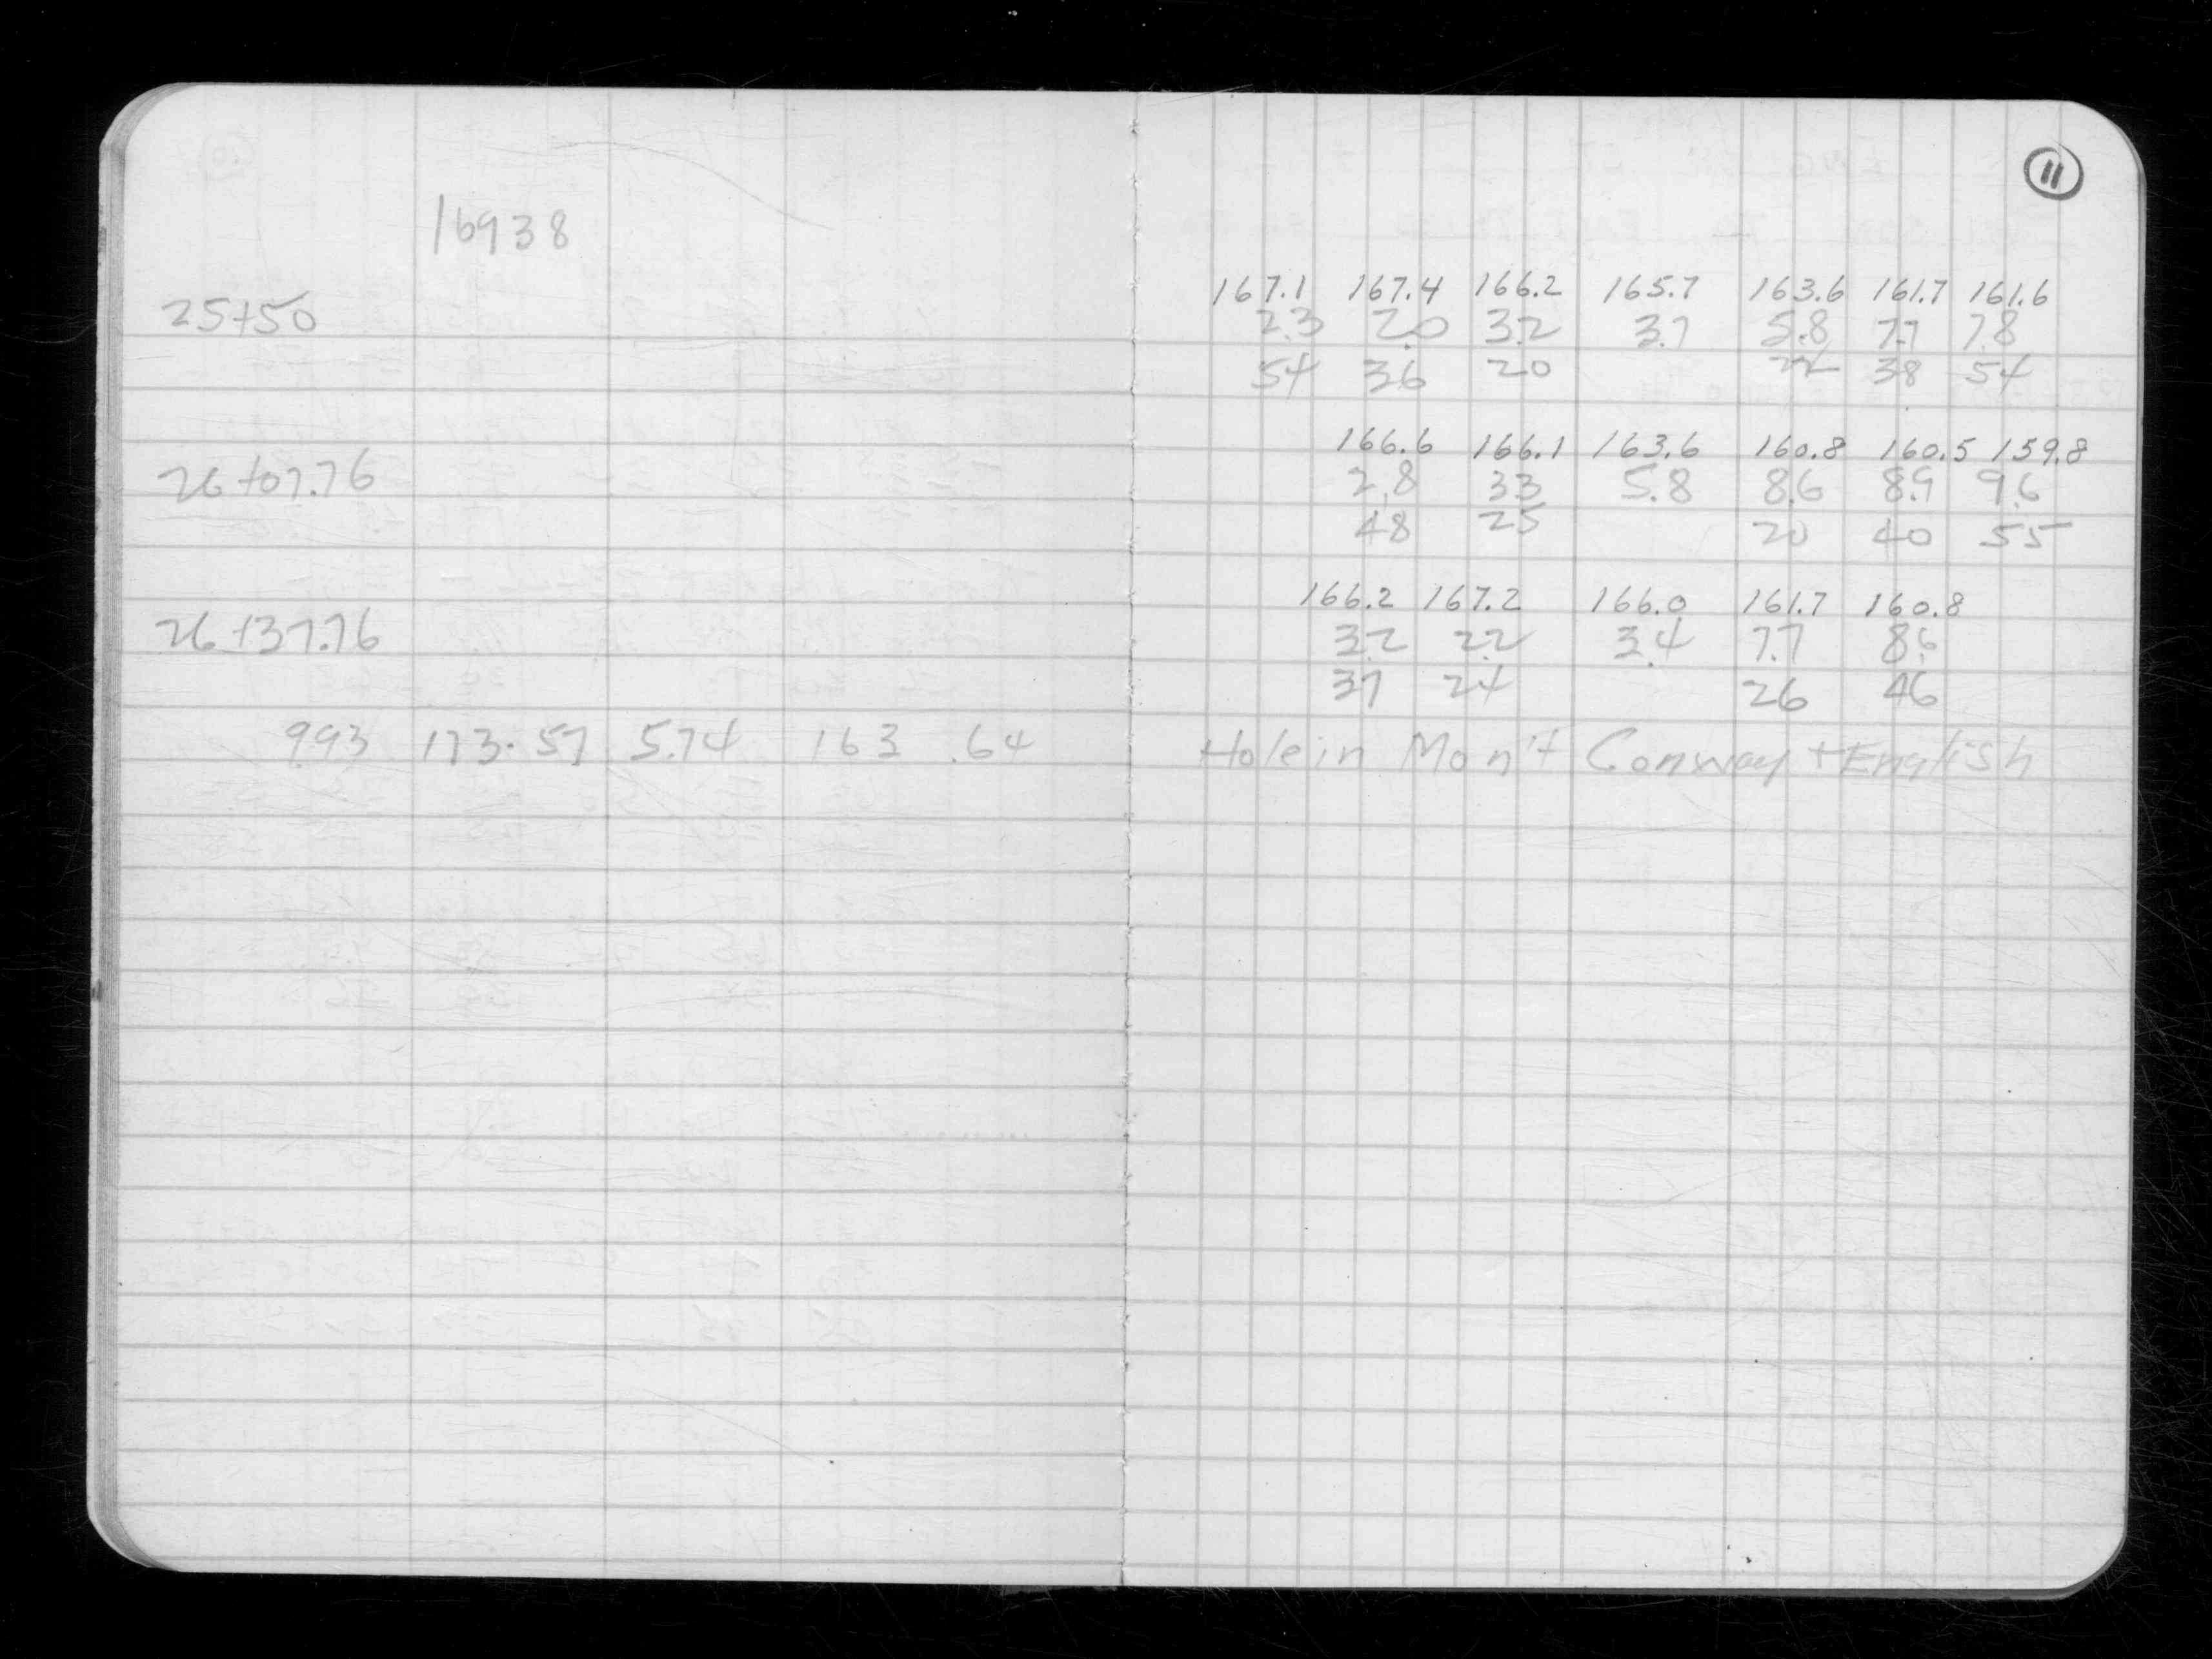 11
16938
25+50
167.1 167.4 166.2 165.7 163.6 161.7 161.6
2.3 2.0 3.2 3.7 5.8 7.7 7.8
54 36 20 22 38 54
26+07.76
166.6 166.1 163.6 160.8 160.5 159.8
2.8 3.3 5.8 8.6 8.9 9.6
48 25 20 40 55
26+37.76
166.2 167.2 166.0 161.7 160.8
3.2 2.2 3.4 7.7 8.6
37 24 26 46
993 173.57 5.74 163.64 Hole in Mon't Conway + English